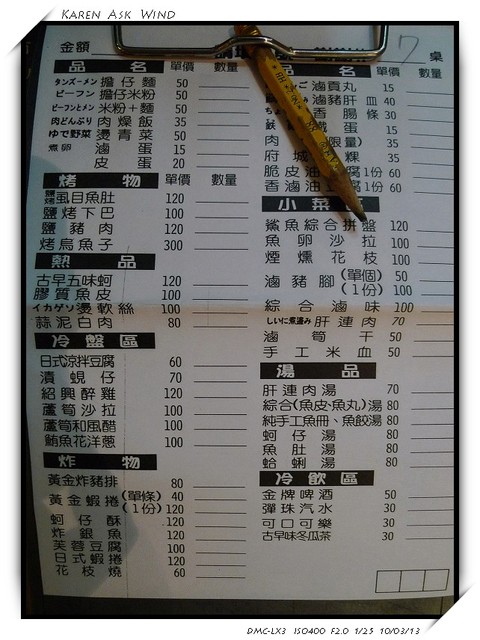 KAREN ASK WIND
金額
7 桌
品名 單價 數量
タンズーメン 擔仔麵 50
ビーフン 擔仔米粉 50
ビーフンとメン 米粉+麵 50
肉どんぶり 肉燥飯 35
ゆで野菜 燙青菜 50
煮卵 滷蛋 15
皮蛋 20
烤物 單價 數量
鹽烤虱目魚肚 120
鹽烤下巴 100
鹽豬肉 120
烤烏魚子 300
熱品
古早五味蚵 120
膠質魚皮 100
イカゲソ 燙軟絲 100
蒜泥白肉 80
冷盤區
日式涼拌豆腐 60
漬蜆仔 70
紹興醉雞 120
蘆筍沙拉 100
蘆筍和風醋 100
鮪魚花洋蔥 100
炸物
黃金炸豬排 80
黃金蝦捲 (單條) 40
(1份) 120
蚵仔酥 120
炸銀魚 120
芙蓉豆腐 100
日式蝦捲 120
花枝燒 60
名 單價 數量
滷貢丸 15
滷豬肝血 40
香腸條 30
蛋 15
肉 限量) 35
府城 粿 35
脆皮油 腐1份 60
香滷油豆腐1份 60
小菜
鯊魚綜合拼盤 120
魚卵沙拉 100
煙燻花枝 100
滷豬腳 (單個) 50
(1份) 100
綜合滷味 100
しいに煮込み 肝連肉 70
滷筍干 50
手工米血 50
湯品
肝連肉湯 70
綜合(魚皮、魚丸)湯 80
純手工魚冊、魚餃湯 80
蚵仔湯 80
魚肚湯 80
蛤蜊湯 80
冷飲區
金牌啤酒 50
彈珠汽水 30
可口可樂 30
古早味冬瓜茶 30
DMC-LX3 ISO400 F2.0 1/25 10/03/13